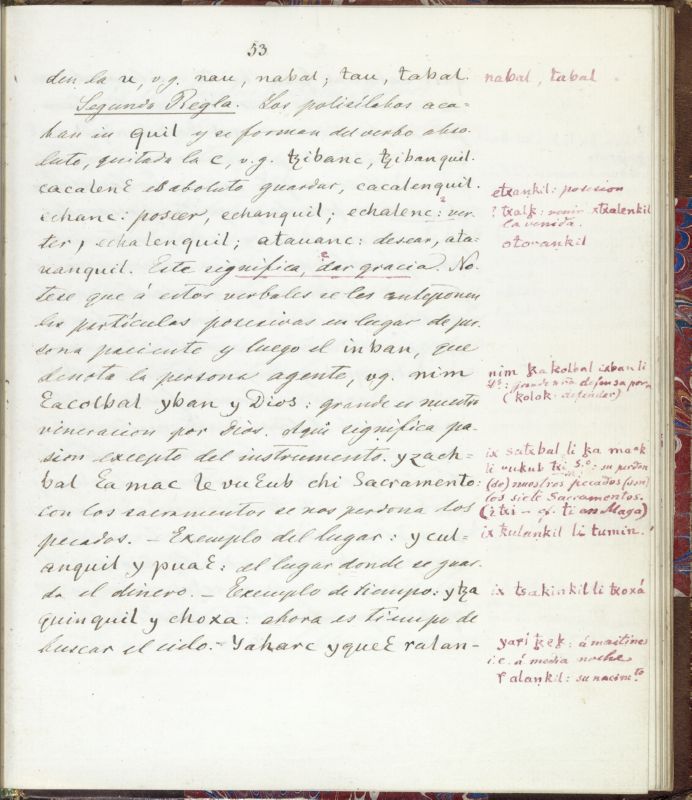 53
den la u, v.g. nau, nabal; tau, tabal.
Segunda Regla. Los polisílabos aca=
ban in quil y se forman del verbo abso=
luto, quitada la c, v.g. tzibanc, tzibanquil.
cacalenƐ es absoluto guardar, cacalenquil.
echanc: poseer, echanquil; echalenc: ver=
ter, echalenquil; atauanc: desear, ata=
uanquil. Este significa, dar gracia. No=
tese que á estos verbales se les anteponen
las partículas posesivas en lugar de per.
sona paciente y luego el inban, que
denota la persona agente, vg. nim
Ɛacolbal yban y Dios: grande es nuestra
veneracion por Dios. Aqui significa pa=
sion excepto del instrumento. y zach=
bal Ɛa mac le vuƐub chi Sacramento:
con los sacramentos se nos perdona los
pecados. — Exemplo del lugar: y cul=
anquil y puaƐ: el lugar donde se guar=
da el dinero. — Exemplo de tiempo: y tza
quinquil y choxa: ahora es tiempo de
buscar el cielo. — Yaharc yqueƐ ralan-
nabal, tabal.
etxankil: posesion
? txalk: venir xtxalenkil
la venida.
otovankil
nim ka kolbal ixban li
(kolok: defender)
ix satxbal li ka mack
li vukub txi S.o: su perdon
(de) nuestros pecados (son)
los siete Sacramentos.
(i txi — cf. ti en Maya)
ix kulankil li tumin.
ix tsakinkil li txoxá
yari kek: á maitines
i.e. á media noche
ralankil: su nacim.to